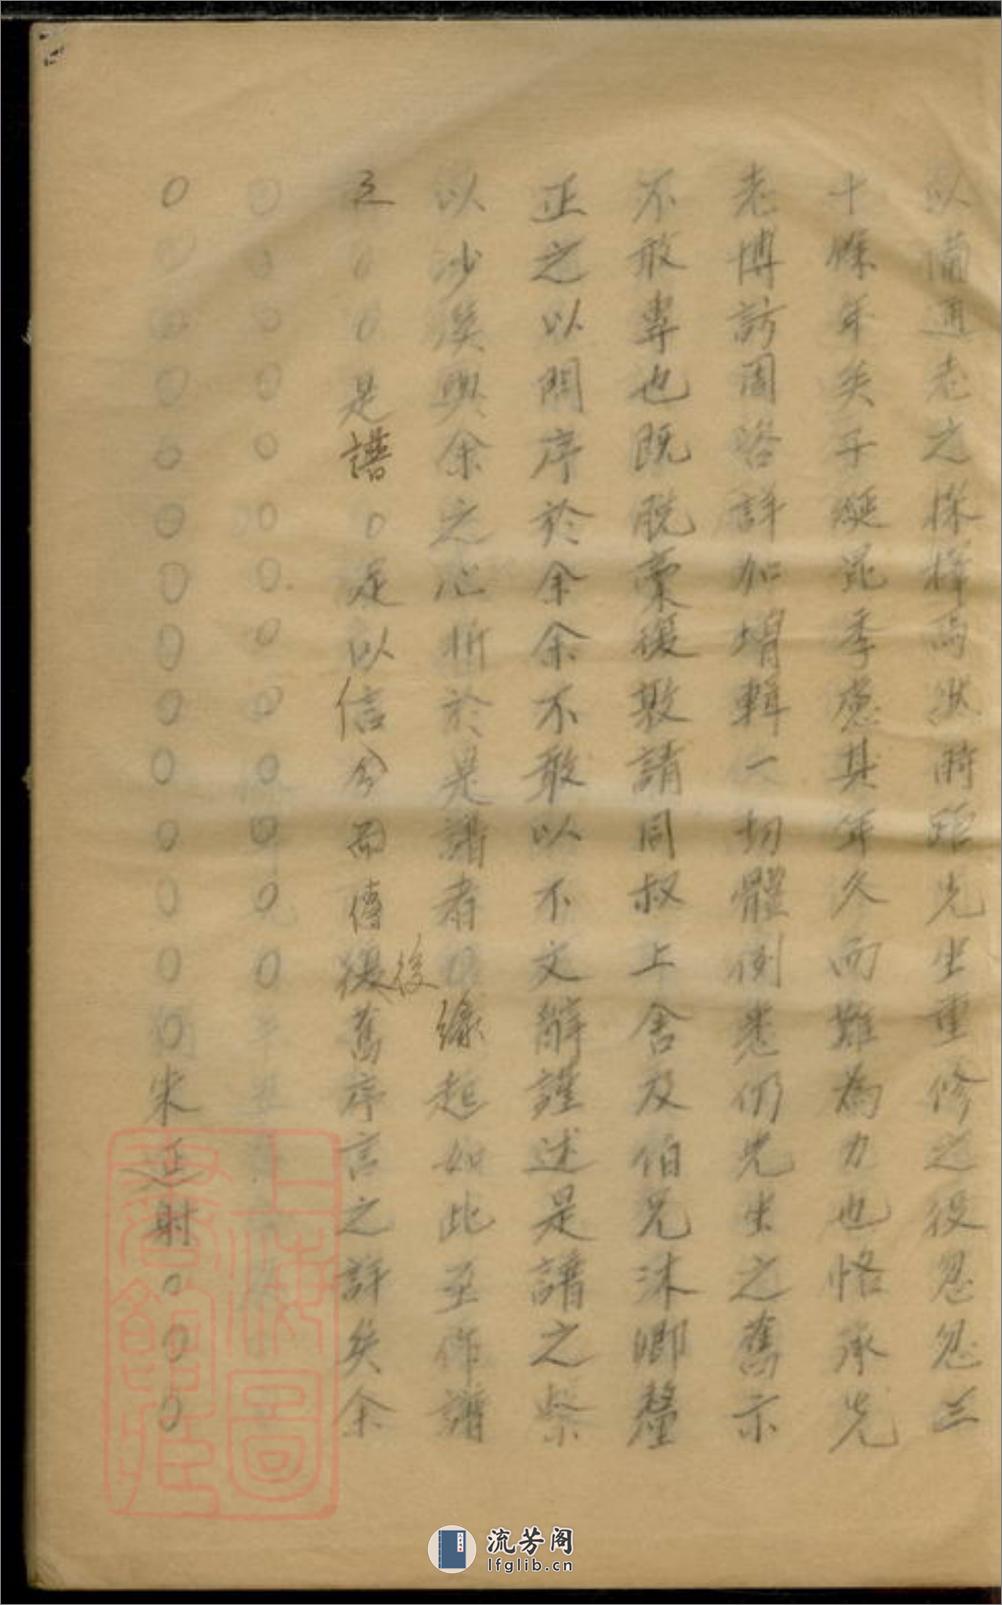 以備通老之採擇焉然時距先生重修之役忽忽三
十餘年矣子綖昆季慮其年久而難為力也恪承先
志博訪周咨詳加增輯一切體例悉仍先生之舊示
不敢專也既脫稾復敬請同叔上舍及伯兄沐卿釐
正之以問序於余余不敢以不文辭謹述是譜之
以沙溪與余之心折於是譜者〇緣起如此至作譜
之〇〇是譜〇足以信今而傳後舊序言之詳矣余
後
〇〇〇〇〇〇〇〇〇〇〇〇
〇〇〇〇〇〇〇〇〇〇〇〇〇〇宋廷射〇〇〇
上海圖書館藏
流芳阁
lfglib.cn